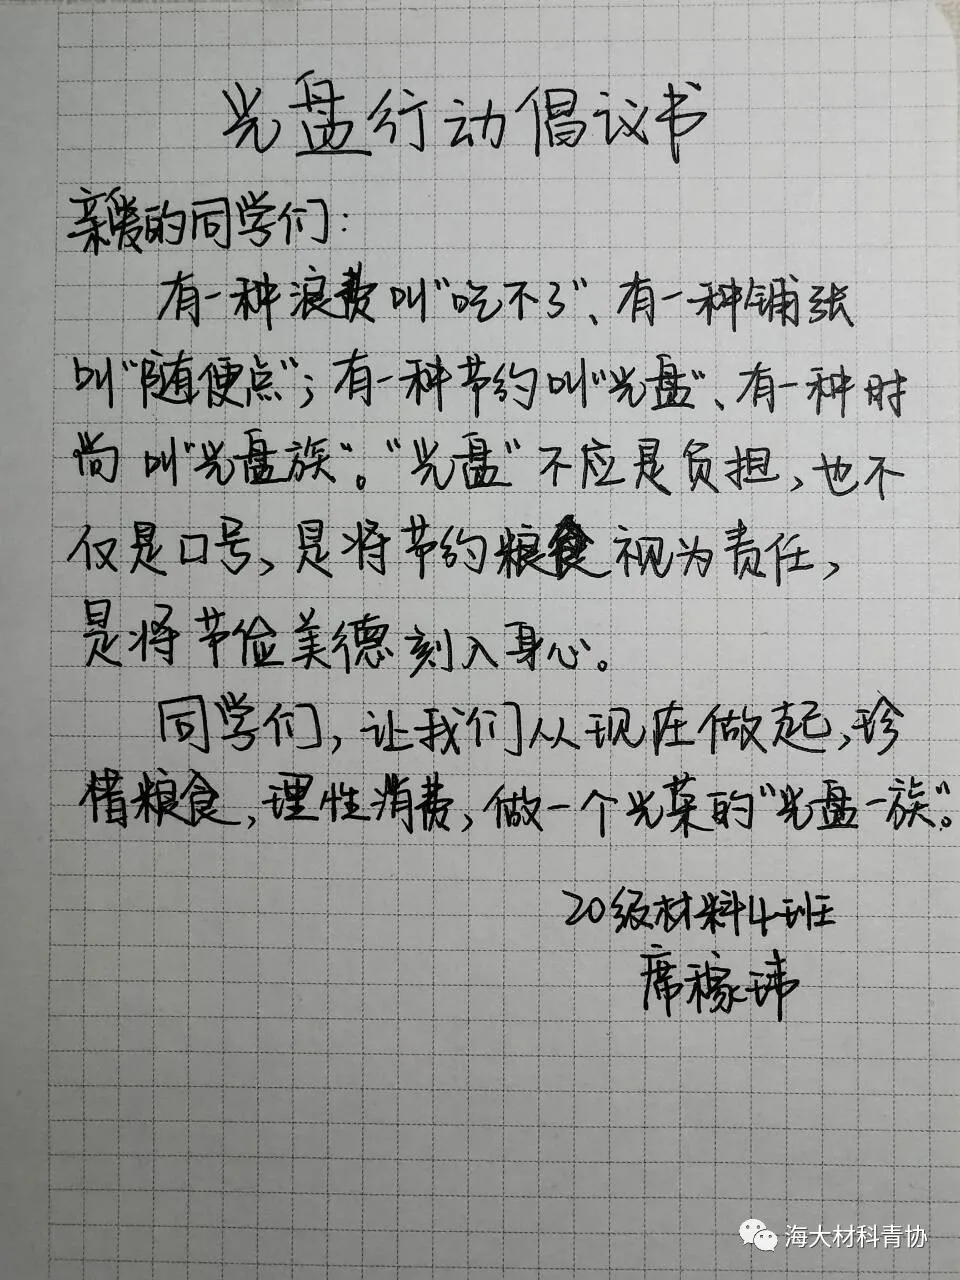 光盘行动倡议书
亲爱的同学们：
有一种浪费叫“吃不了”、有一种铺张
叫“随便点”；有一种节约叫“光盘”、有一种时
尚叫“光盘族”。“光盘”不应是负担，也不
仅是口号，是将节约粮食视为责任，
是将节俭美德刻入身心。
同学们，让我们从现在做起，珍
惜粮食，理性消费，做一个光荣的“光盘一族”。
20级材料4班
席稼玮
海大材科青协